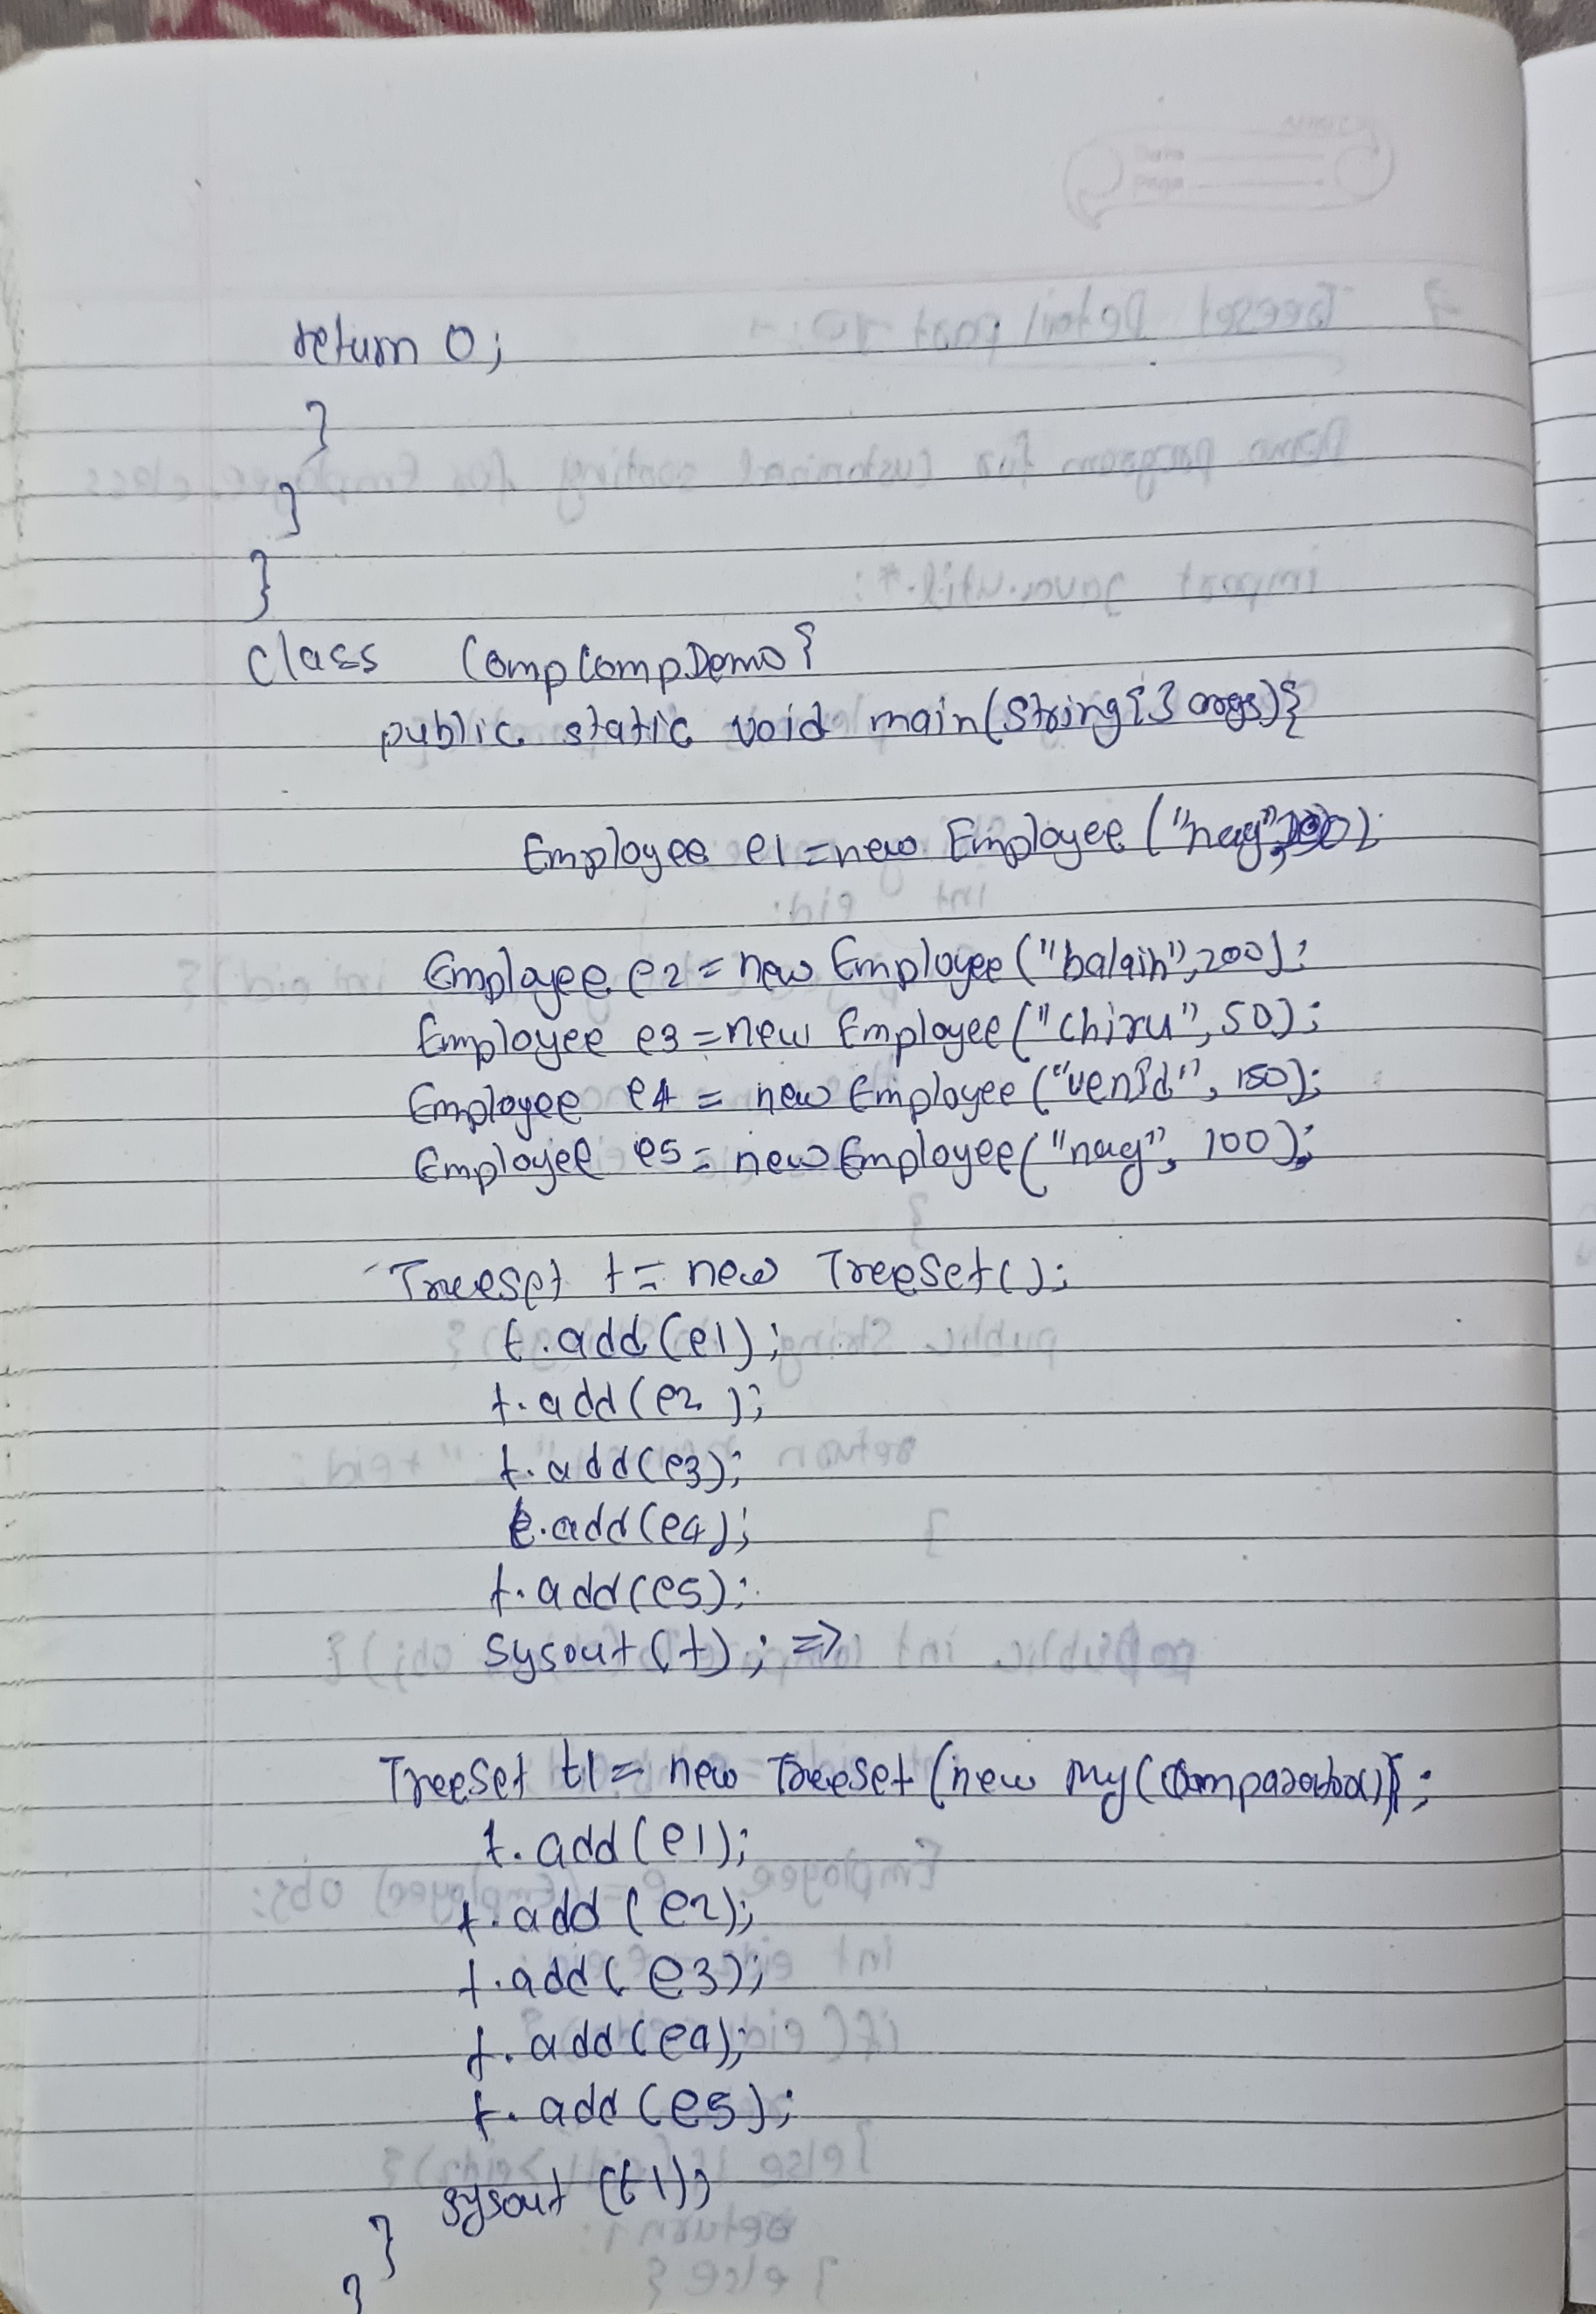 return 0;
}
}
}
class CompCompDemo{
public static void main(String{} args){
Employee e1=new Employee("nag",100);
Employee e2=new Employee("balaih",200);
Employee e3=new Employee("chiru",50);
Employee e4 = new Employee(" ", 150);
Employee e5=new Employee("nag", 100);
TreeSet t= new TreeSet();
t.add(e1);
t.add(e2);
t.add(e3);
t.add(e4);
t.add(e5);
Sysout(t); =>
TreeSet t1= new TreeSet(new My Comparator());
t.add(e1);
t.add(e2);
t.add(e3);
t.add(e4);
t.add(e5);
sysout (t1);
}
}